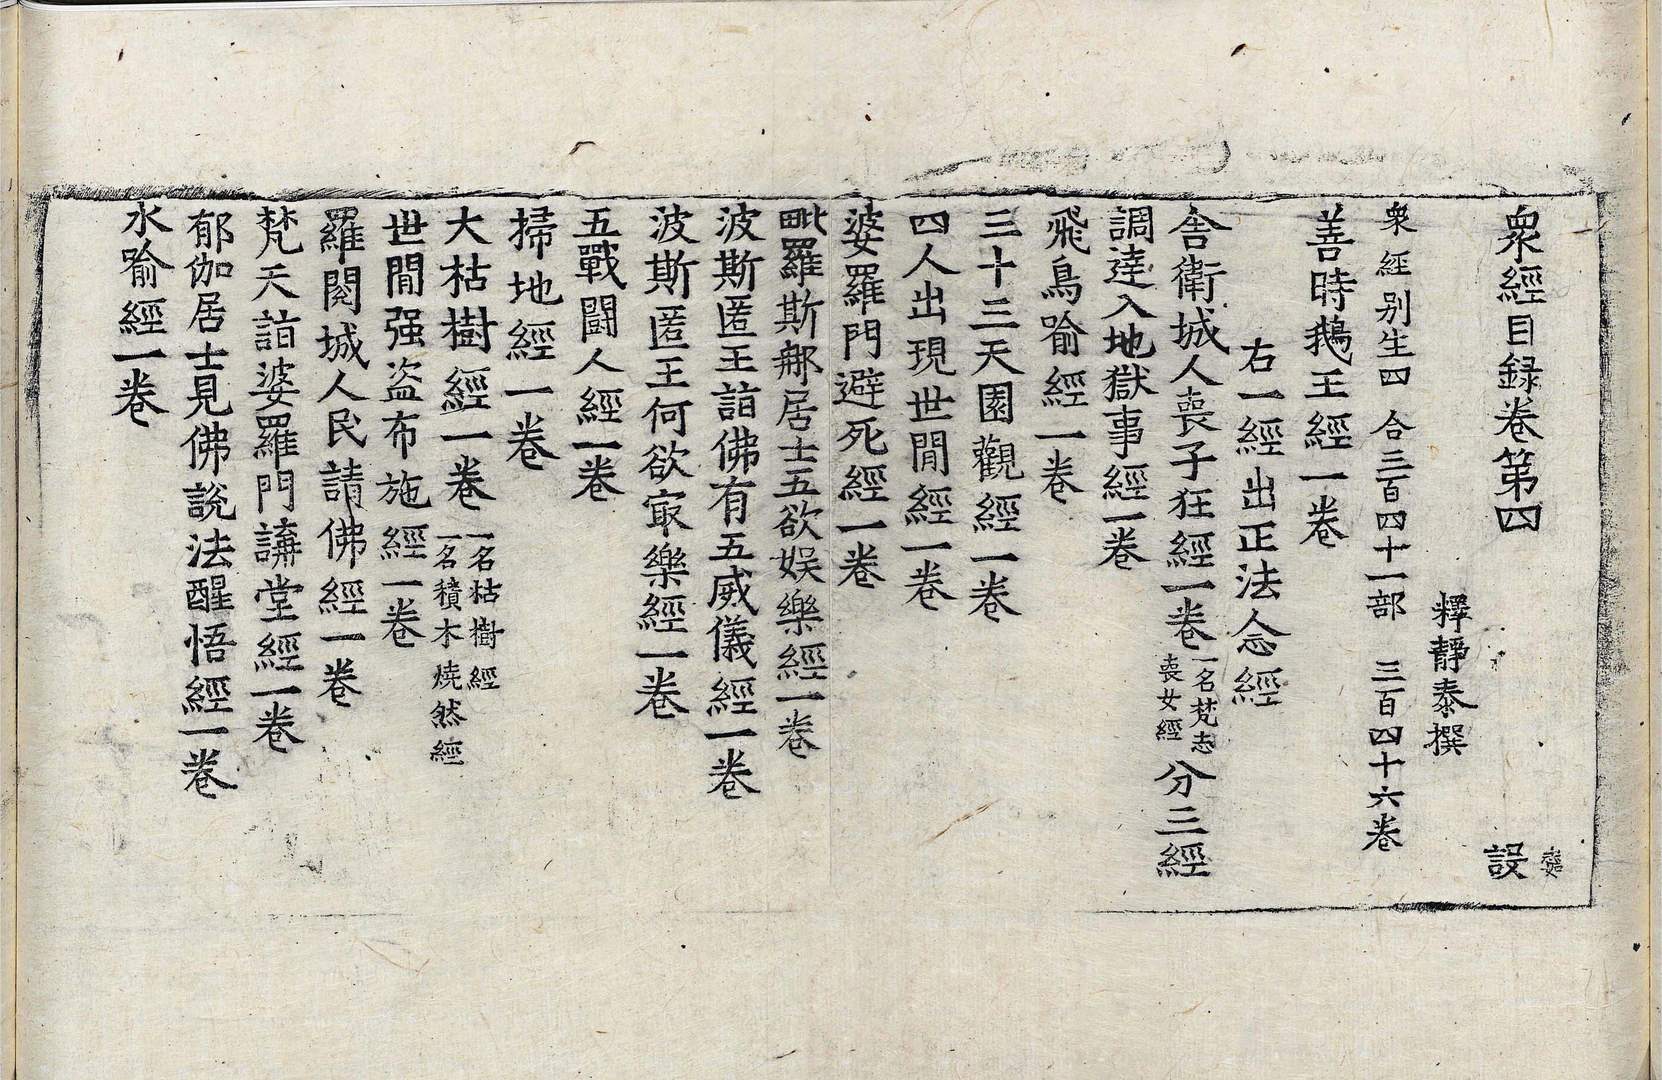 衆經目録卷第四 設
釋靜泰撰
衆經别生四 合三百四十一部 三百四十六卷
善時鵝王經一卷
右一經出正法念經
舍衛城人喪子狂經一卷 一名梵志喪女經 分三經
調達入地獄事經一卷
飛鳥喻經一卷
三十三天園觀經一卷
四人出現世閒經一卷
婆羅門避死經一卷
毗羅斯那居士五欲娱樂經一卷
波斯匿王詣佛有五威儀經一卷
波斯匿王何欲㝡樂經一卷
五戰鬪人經一卷
掃地經一卷
大枯樹經一卷 一名枯樹經 一名積木燒然經
世閒强盗布施經一卷
羅閱城人民請佛經一卷
梵天詣婆羅門講堂經一卷
郁伽居士見佛說法醒悟經一卷
水喻經一卷